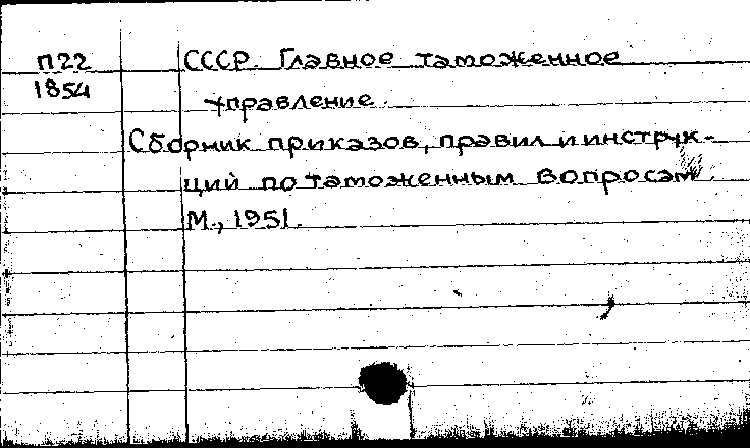 П22 СССР. Главное таможенное
1854 управление.
Сборник приказов, правил и инструк-
ций по таможенным вопросам.
М., 1951.